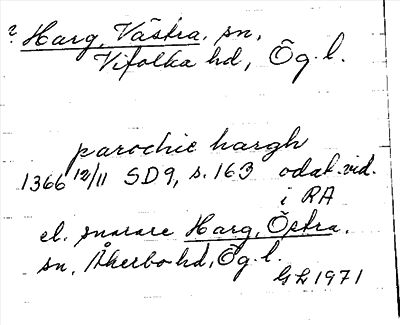 ? Harg, Västra, sn,
Vifolka hd, Ög. l.
parochie hargh
1366 12/11 SD9, s. 163 odat. vid.
i RA
el. snarare Harg, Östra,
sn, Åkerbo hd, Ög. l.
GL 1971